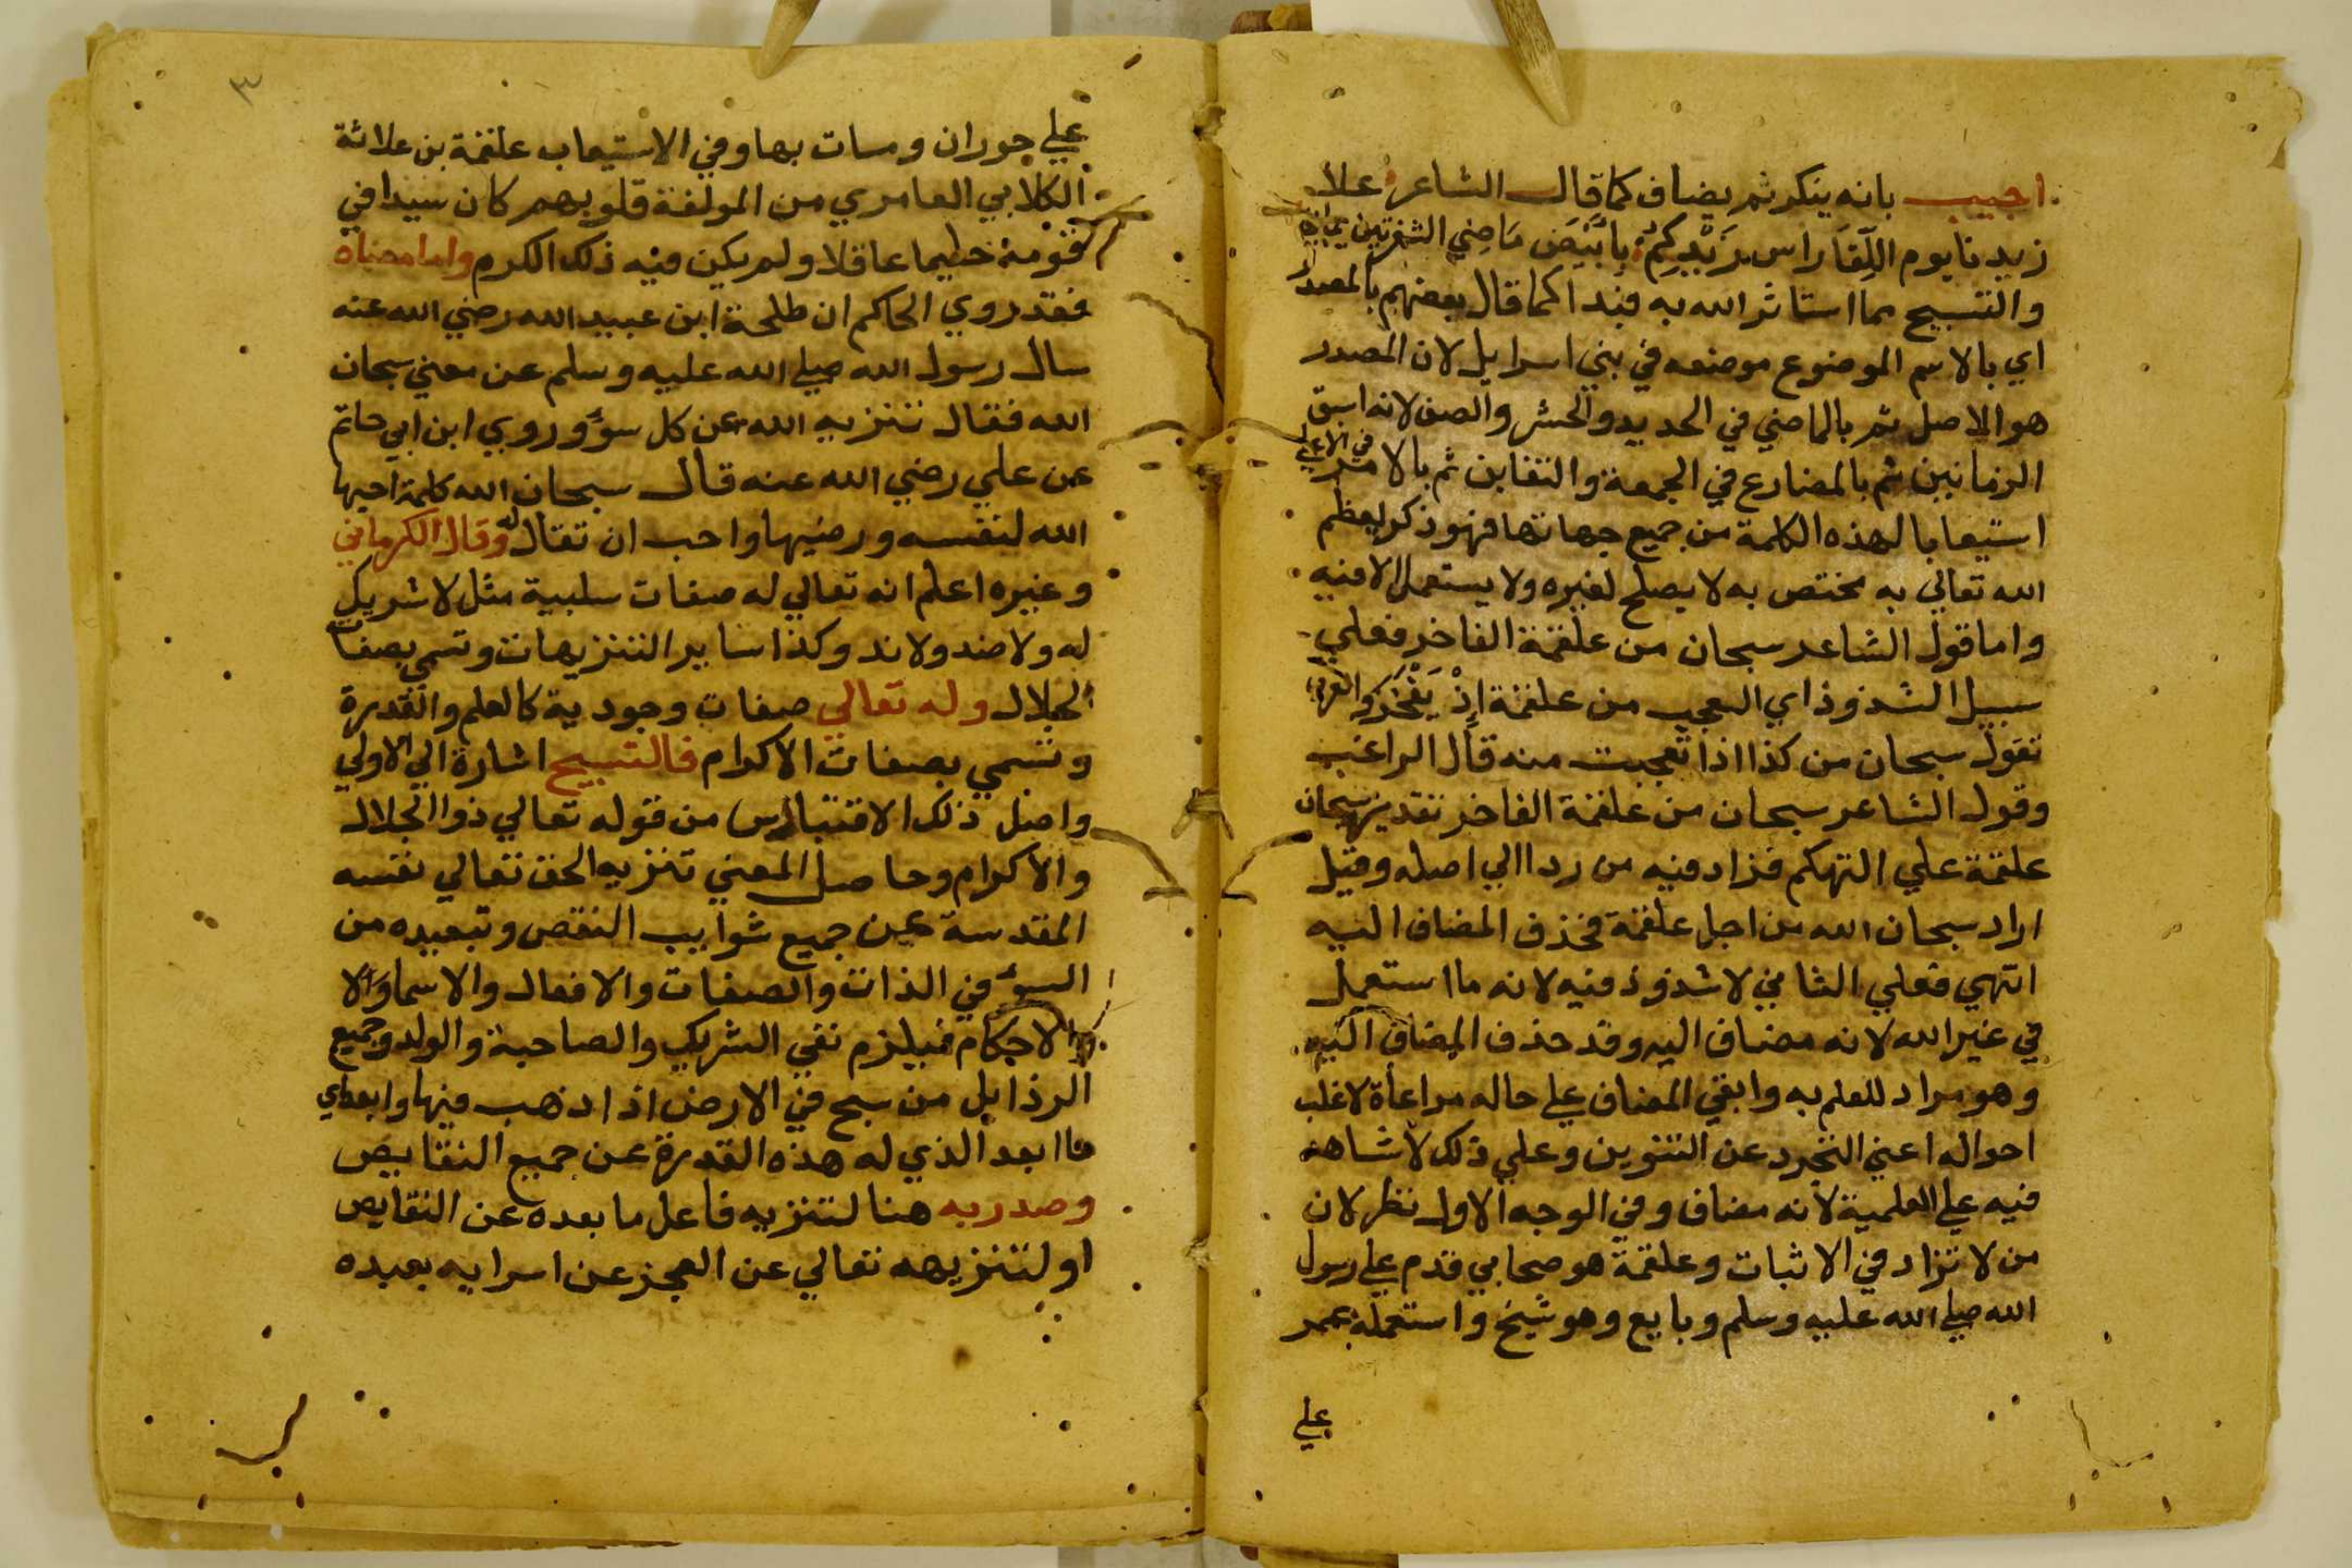 اجيب بانه ينكر ثم يضاف كما قال الشاعر علا
زيدنا يوم اللِّقَا راس زَيْدِكمْ بِأَبْيَضَ مَاضِي الشفرتين يماني
والتسبيح مما استاثر الله به فبدا كما قال بعضهم بالمصدر
اي بالاسم الموضوع موضعه في بني اسرايل لان المصدر
هو الاصل ثم بالماضي في الحديد والحشر والصف لانه اسبق
الزمانين ثم بالمضارع في الجمعة والتغابن ثم بالامر في الاعلي
استيعابا لهذه الكلمة من جميع جهاتها فهو ذكر يعظم
الله تعالي به مختص به لا يصلح لغيره ولا يستعمل الا فيه
واما قول الشاعر سبحان من علقمة الفاخر فعلي
سبيل الشذوذ اي العجب من علقمة اِذْ يَفْخَر والعرب
تقول سبحان من كذا اذا تعجبت منه قال الراغب
وقول الشاعر سبحان من علقمة الفاخر تقديره سبحان
علقمة علي التهكم فزاد فيه من ردا الي اصله وقيل
اراد سبحان الله من اجل علقمة فحذف المضاف اليه
انتهي فعلي الثاني لا شذوذ فيه لانه ما استعمل
في غير الله لانه مضاف اليه وقد حذف المضاف اليه
وهو مراد للعلم به وابقي المضاف علي حاله مراعاة لاغلب
احواله اعني التجرد عن التنوين وعلي ذلك لا شاهد
فيه علي العلمية لانه مضاف وفي الوجه الاول نظر لان
من لا تزاد في الاثبات وعلقمة هو صحابي قدم علي رسول
الله صلي الله عليه وسلم وبايع وهو شيخ واستعمله عمر
علي
٣
علي جوران ومات بها وفي الاستيعاب علقمة بن علاثة
الكلابي العامري من المولفة قلوبهم كان سيدا في
قومه حليما عاقلا ولم يكن فيه ذلك الكرم واما معناه
فقد روي الحاكم ان طلحة ابن عبيد الله رضي الله عنه
سال رسول الله صلي الله عليه وسلم عن معني سبحان
الله فقال تنزيه الله عن كل سوء وروي ابن ابي حاتم
عن علي رضي الله عنه قال سبحان الله كلمة احبها
الله لنفسه ورضيها واحب ان تقال له وقال الكرماني
وغيره اعلم انه تعالي له صفات سلبية مثل لا شريك
له ولا ضد ولا ند وكذا ساير التنزيهات وتسمي بصفات
الجلال وله تعالي صفات وجودية كالعلم والقدرة
وتسمي بصفات الاكرام فالتسبيح اشارة الي الاولي
واصل ذلك الاقتباس من قوله تعالي ذو الجلال
والاكرام وحاصل المعني تنزيه الحق تعالي نفسه
المقدسة عن جميع شوايب النقص وتبعيده من
السوء في الذات والصفات والافعال والاسما والا
الاحكام فيلزم نفي الشريك والصاحبة والولد وجميع
الرذايل من سبح في الارض اذا ذهب فيها وابعد اي
ما ابعد الذي له هذه القدرة عن جميع النقايص
وصدر به هنا لتنزيه فاعل ما بعده عن النقايص
او لتنزيهه تعالي عن العجز عن اسرايه بعبده